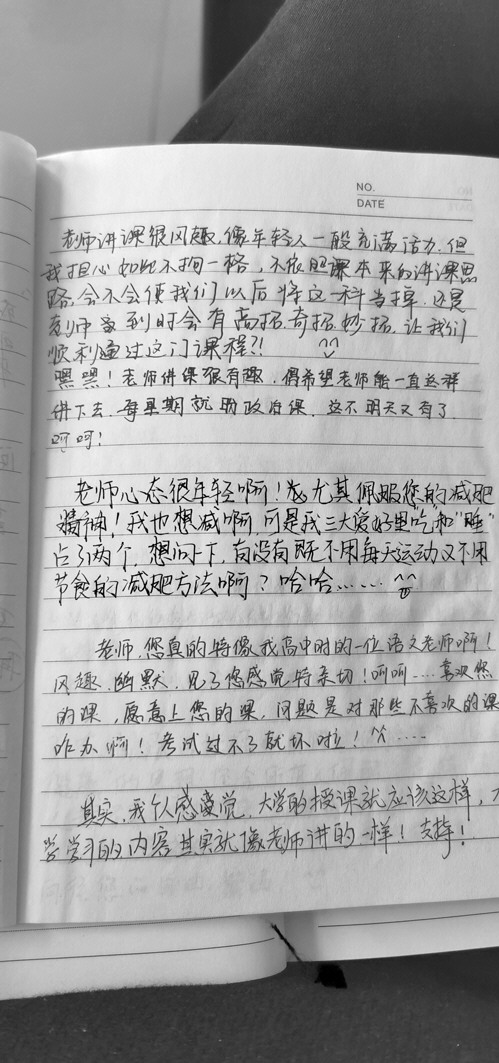 NO.
DATE
老师讲课很风趣,像年轻人一般充满活力.但
我担心如此不拘一格,不依照课本来的讲课思
路.会不会使我们以后将这一科当掉.还是
老师会到时会有高招.奇招.妙招.让我们
顺利通过这门课程?! ^^
嘿嘿!老师讲课很有趣.偶希望老师能一直这样
讲下去.每星期就盼政治课.这不明天又有了
呵呵!
老师心态很年轻啊!我尤其佩服您的减肥
精神!我也想减啊,可是我三大爱好里"吃"和"睡"
占了两个.想问下,有没有既不用每天运动又不用
节食的减肥方法啊?哈哈……^^
老师.您真的特像我高中时的一位语文老师啊!
风趣.幽默.见了您感觉特亲切!呵呵....喜欢您
的课,愿意上您的课,问题是对那些不喜欢的课
咋办啊!考试过不了就坏啦!^^.....
其实,我个人感觉,大学的授课就应该这样,
学学习的内容其实就像老师讲的一样!支持!